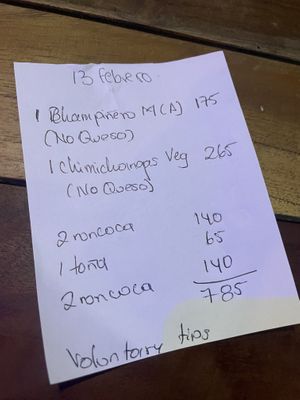 13 febrero
1 Bhampiñero M(A) 175
(No Queso)
1 Chimichangas Veg 265
(No Queso)
2 roncoca 140
1 toña 65
2 roncoca 140
785
Voluntary tips